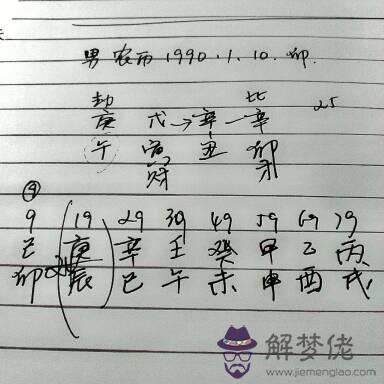 男 农历 1990.1.10.卯.
劫 比
庚 戊→辛一辛 25
午 寅 丑 卯
财 才
④
9 19 29 39 49 59 69 79
己 庚 辛 壬 癸 甲 乙 丙
卯 辰 巳 午 未 申 酉 戌
解梦佬
www.jiemenglao.com